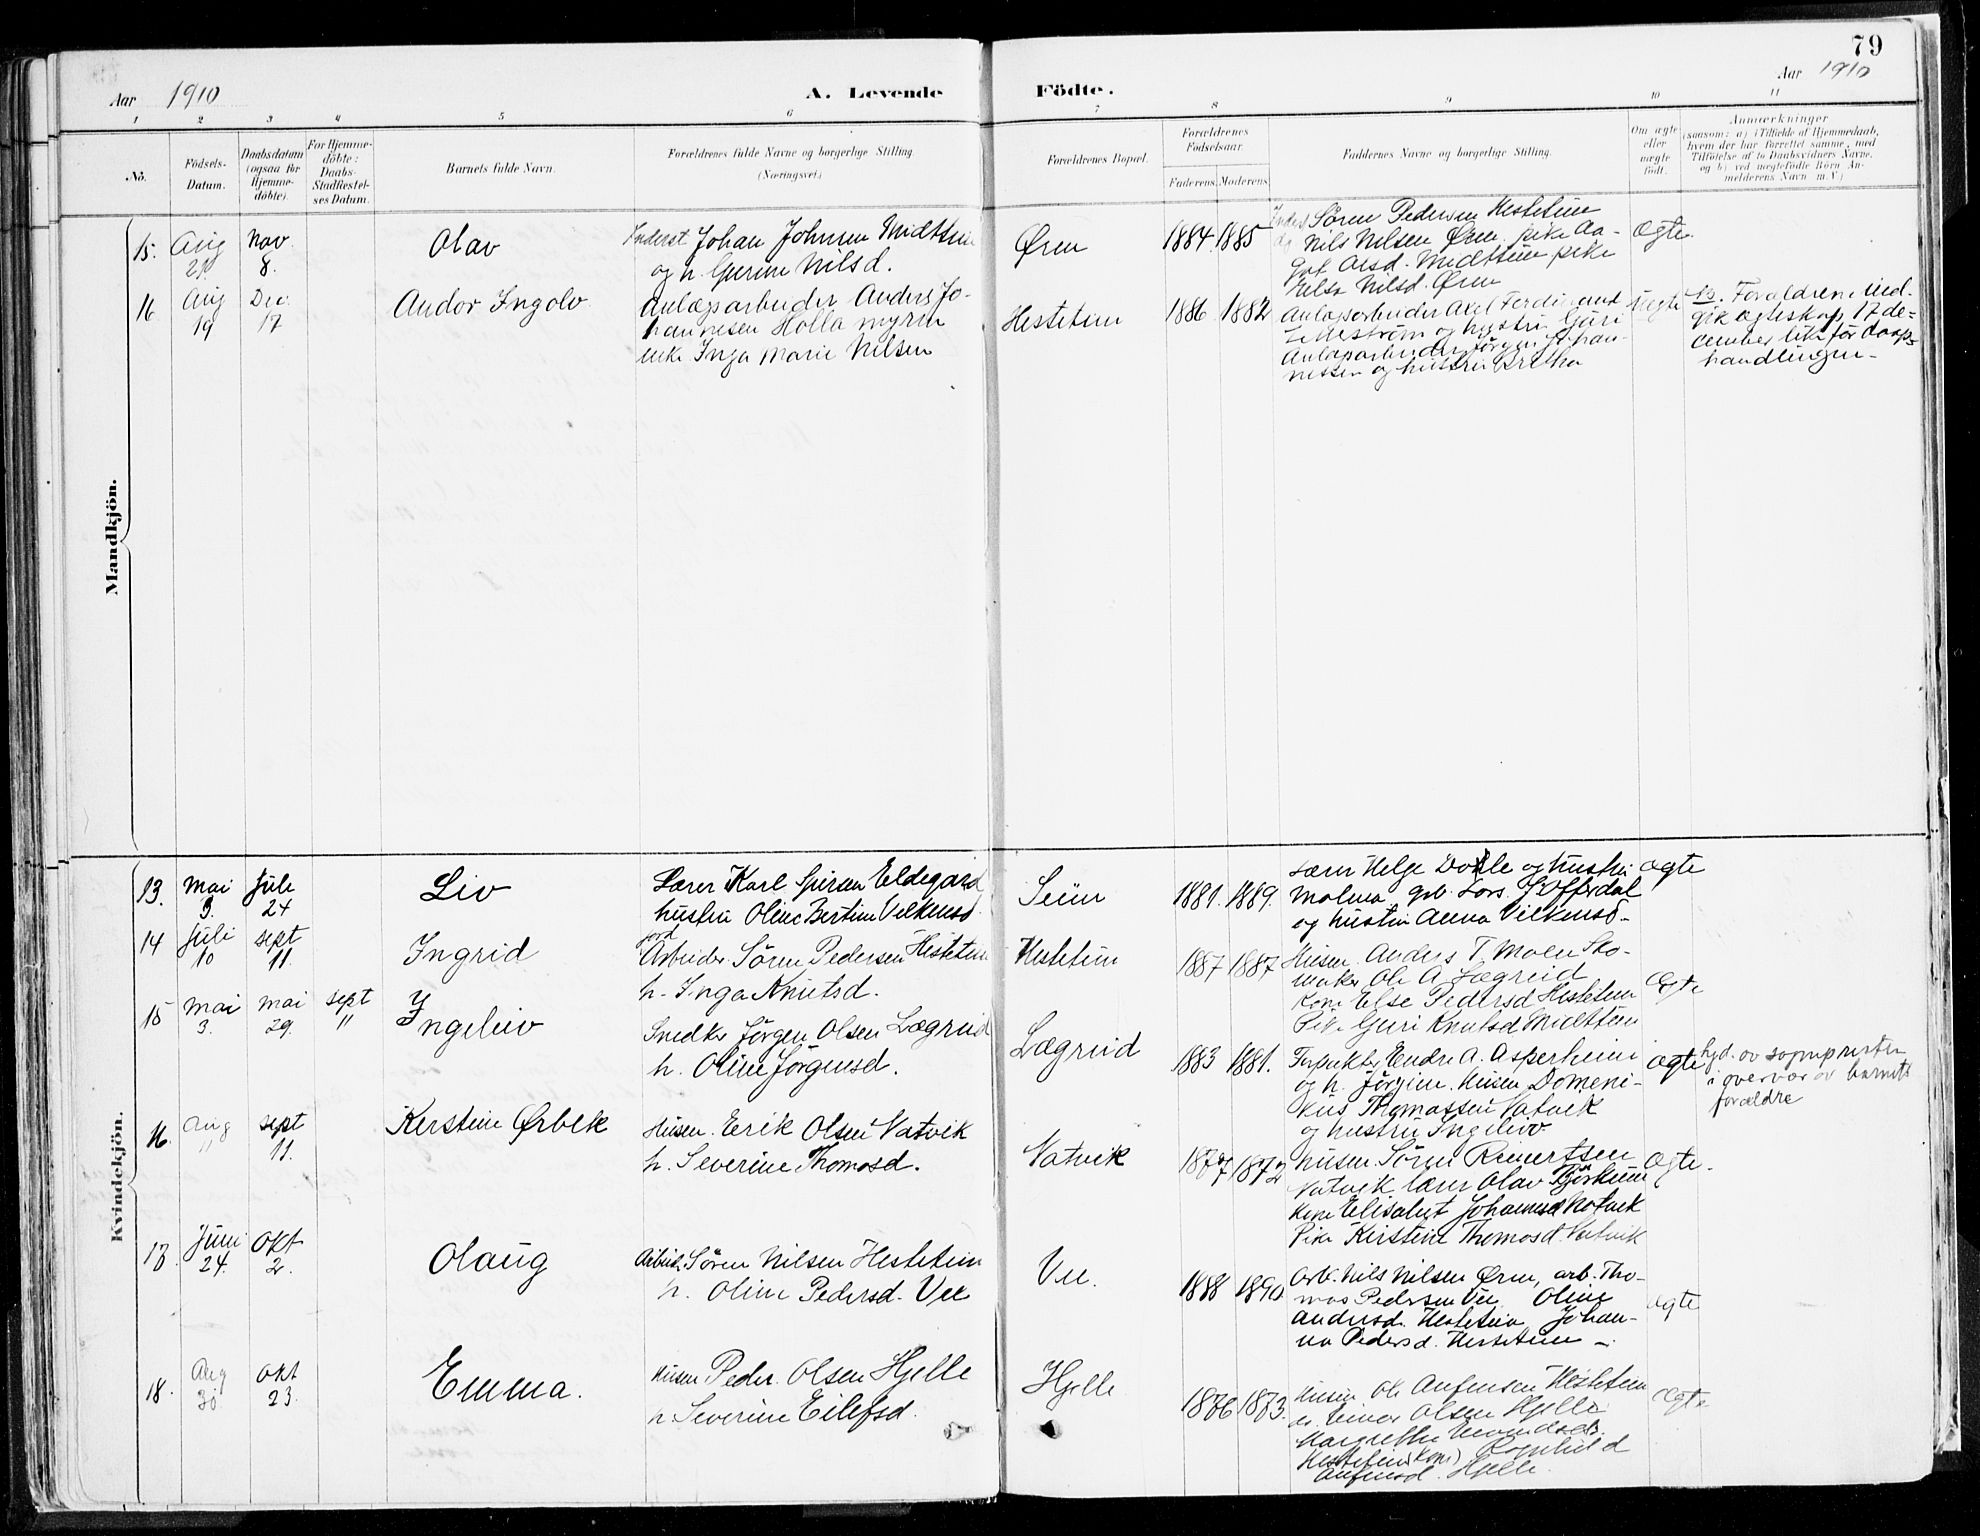 79
Aar 1910
A. Levende Födte.
Aar 1910
1 2 3 4 5 6 7 8 9 10 11
No.
Födsels-Datum.
Daabsdatum (ogsaa for Hjemme-döbte).
For Hjemme-döbte: Daabs-Stadfæstel-ses Datum.
Barnets fulde Navn.
Forældrenes fulde Navne og borgerlige Stilling.
(Næringsvei.)
Forældrenes Bopæl.
Forældrenes Födselsaar.
Faderens. Moderens.
Faddernes Navne og borgerlige Stilling.
Om ægte eller uægte födt.
Anmærkninger
(saasom: a) i Tilfælde af Hjemmedaab,
hvem der har forrettet samme, med
Tilföielse af to Daabsvidners Navne,
og b) ved uægtefödte Börn An-
melderens Navn m. V.)
Mandkjön.
15. Aug 21. Nov. 8.
Olav
Inderst Johan Johnsen Midttun
og h. Gurine Nilsd.
Øren
1884. 1885
Søren Pedersen Hestetun
Nils Nilsen Øren. pike Aa-
got Arsd. Midttun pike
Nilsd. Øren
Ægte.
16 Aug 19 Dec. 17
Andor Ingolv
Anlægsarbeider Anders Jo-
hannesen Hollamyren
enke Inga Marie Nilsen
Hestetun
1886. 1882
Anlægsarbeider Axel Ferdinand
og hustru Guri
Anlægsarbeider Jørgen Johan-
nessen og hustru Bretha
Uægte
NB. Forældrene ind-
gik ægteskap 17 de-
cember like før daaps-
handlingen.
Kvindekjön.
13. Mai 9. Juli 24
Liv
Lærer Karl Eldegard
hustru Oline Bertine Vilkensd.
Seim
1881. 1889.
Lærer Helge Dokle og hustru
Malena grb. Lars Offerdal
og hustru Anna Vilkensd.
Ægte
14 Juli 10 Sept 11.
Ingrid
jord
Arbeider Søren Pedersen Hestetun
h. Inga Knutsd.
Hestetun
1887 1887
Husm. Anders T. Moen Sko-
maker Ole A. Lægreid
Kone Else Pedersd Hestetun
Pike Guri Knutsd Midttun
Ægte
15 Mai 3. Mai 29. Sept 11
Ingeleiv
Snedker Jørgen Olsen Lægreid
h. Oline Jørgensd.
Lægreid
1883 1881.
Endre A. Asperheim
og h. Jørgine. Husm. Domeni-
kus Thomassen Natvik
og hustru Ingeleiv.
Ægte
hjd. av sogneprsten
i overvær av barnets
forældre
16. Aug 11 Sept 11.
Kerstine Ørbek
Husm. Erik Olsen Natvik
h. Severine Thomasd.
Natvik
1877 1872
Husm. Søren Reinertsen
Natvik. lærer Olav Bjørkum
Kone Elisabet Johannesd Natvik
Pike Kirstine Thomasd. Natvik
Ægte.
17. Juni 24. Okt 2.
Olaug
Arbeid. Søren Nilsen Hestetun
h. Oline Pedersd. Vee
Vee.
1888 1890
Arb. Nils Nilsen Øren, arb. Tho-
mas Pedersen Vee Oline
Andersd. Hestetun Johan-
na Pedersd. Hestetun
Ægte
18. Aug 30 Okt 23.
Emma.
Husm Peder Olsen Hjelle
h. Severine Eilefsd.
Hjelle
1876 1873.
Husm Ole Anfinsen Hestetun
Olsen Hjelle
Margrethe
Hestetun (Kone) Ragnhild
Anfinsd. Hjelle.
Ægte